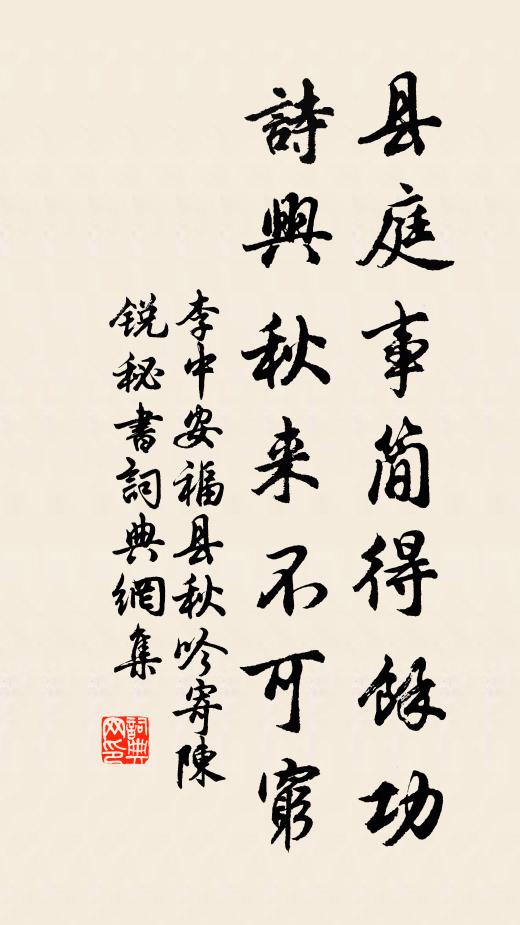 县庭事简得餘功
詩興秋来不可窮
李中安福县秋吟寄陳
锐秘書詞典網集
詞典
网印